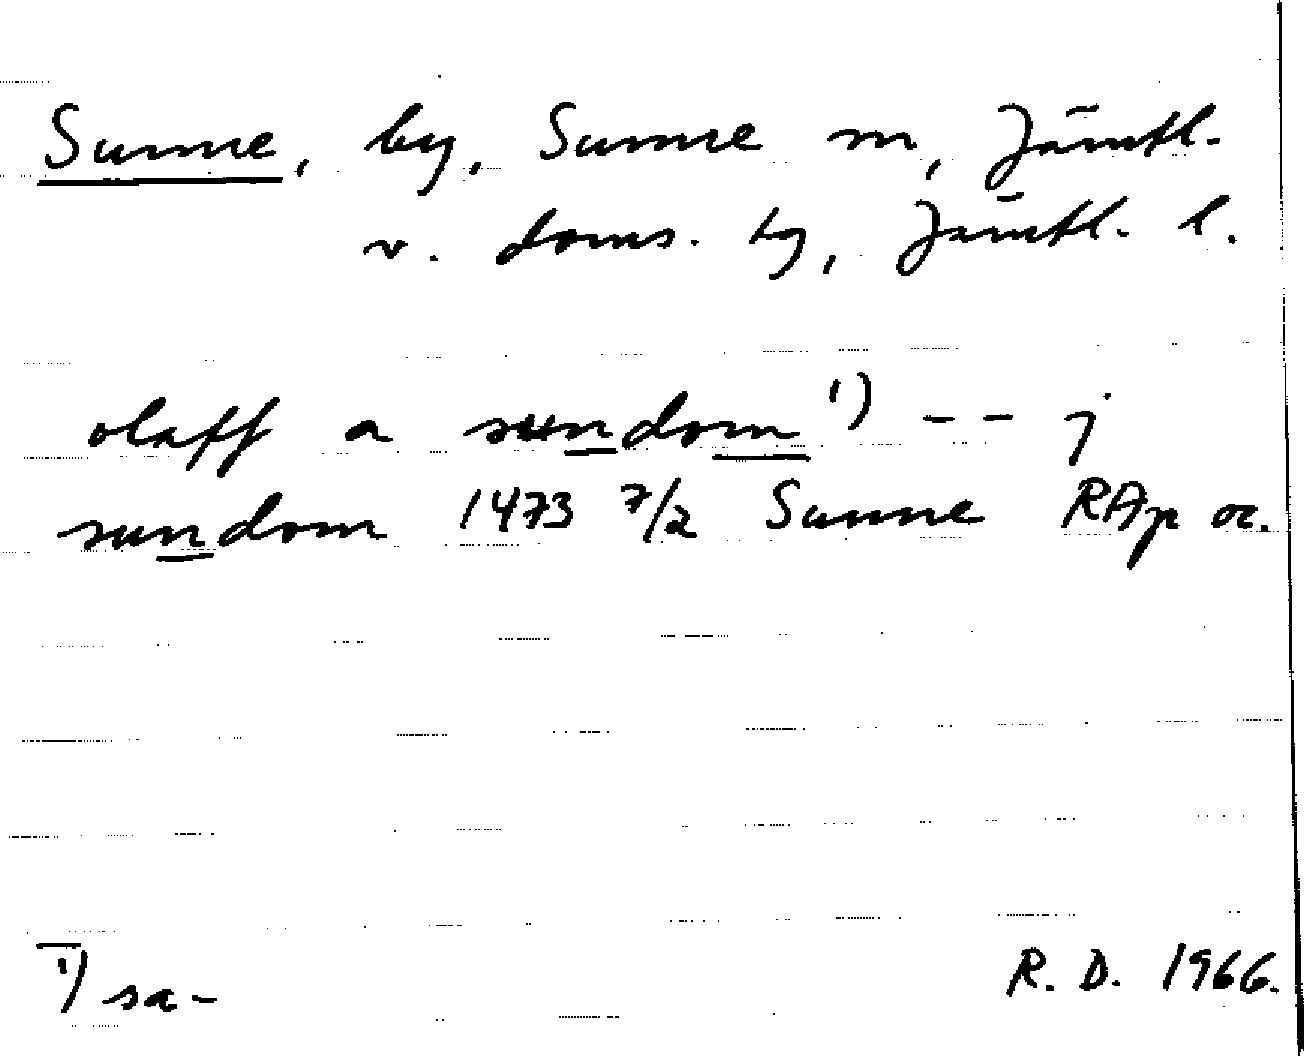 Sunne, by, Sunne sn, Jämtl.
v. doms. tg, Jämtl. l.
olaff a sundom 1) - - j
sundom 1473 7/2 Sunne RAp or.
1) sa-
R. D. 1966.